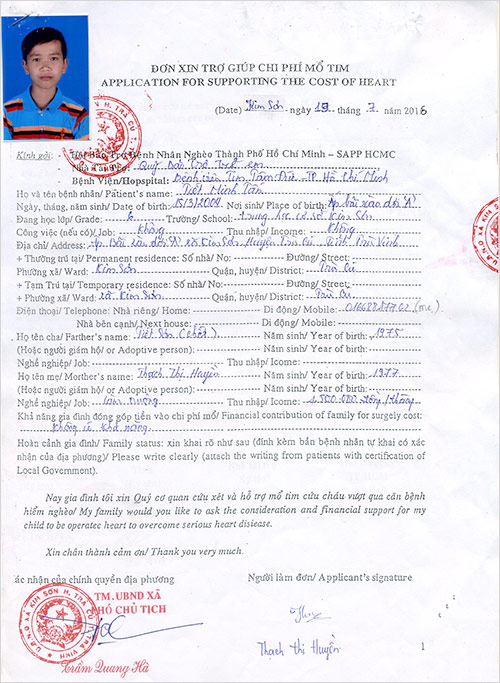 ĐƠN XIN TRỢ GIÚP CHI PHÍ MỔ TIM
APPLICATION FOR SUPPORTING THE COST OF HEART
(Date) Kim Sơn - ngày 19 tháng 7 năm 2016
Kính gửi: - Hội Bảo Trợ Bệnh Nhân Nghèo Thành Phố Hồ Chí Minh – SAPP HCMC
Quỹ Bảo Trợ Trẻ em
Bệnh Viện/Hopspital: Bệnh viện Tim Tâm Đức - TP Hồ Chí Minh
Họ và tên bệnh nhân/ Patient's name: Tiết Minh Tấn
Ngày, tháng, năm sinh/ Date of birth: 15/3/2004 Nơi sinh/ Place of birth: Ấp bảy xào dơi "A"
Đang học lớp/ Grade: 6 Trường/ School: trung học cơ sở Kim Sơn
Công việc (nếu có)/ Job: Không Thu nhập/ Income: Không
Địa chỉ/ Address: Ấp Bảy xào dơi "A" xã Kim Sơn Huyện Trà Cú Tỉnh Trà Vinh
+ Thường trú tại/ Permanent residence: Số nhà/ No: Đường/ Street:
Phường xã/ Ward: Kim Sơn Quận, huyện/ District: Trà Cú
+ Tạm Trú tại/ Temporary residence: Số nhà/ No: Đường/ Street:
+ Phường xã/ Ward: xã Kim Sơn Quận, huyện/ District: Trà Cú
Điện thoại/ Telephone: Nhà riêng/ Home: Di động/ Mobile: (mẹ)
Nhà bên cạnh/ Next house: Di động/ Mobile:
Họ tên cha/ Farther's name: Tiết Sên (chết) Năm sinh/ Year of birth: 1975
(Hoặc người giám hộ/ or Adoptive person): Năm sinh/ Year of birth:
Nghề nghiệp/ Job: Thu nhập/ Income:
Họ tên mẹ/ Morther's name: Thạch Thị Huyền Năm sinh/ Year of birth: 1977
(Hoặc người giám hộ/ or Adoptive person): Năm sinh/ Year of birth:
Nghề nghiệp/ Job: Làm mướn Thu nhập/ Icome: 1.500.000 đồng/tháng
Khả năng gia đình đóng góp tiền vào chi phí mổ/ Financial contribution of family for surgely cost:
Không có khả năng
Hoàn cảnh gia đình/ Family status: xin khai rõ như sau (đính kèm bản bệnh nhân tự khai có xác
nhận của địa phương)/ Please write clearly (attach the writing from patients with certification of
Local Government).
Nay gia đình tôi xin Quý cơ quan cứu xét và hỗ trợ mổ tim cứu cháu vượt qua căn bệnh
hiểm nghèo/ My family would you like to ask the consideration and financial support for my
child to be operatec heart to overcome serious heart disiease.
Xin chân thành cảm ơn/ Thank you very much.
ác nhận của chính quyền địa phương Người làm đơn/ Applicant's signature
TM. UBND XÃ
PHÓ CHỦ TỊCH
Trầm Quang Hà
Thạch thị Huyền
1